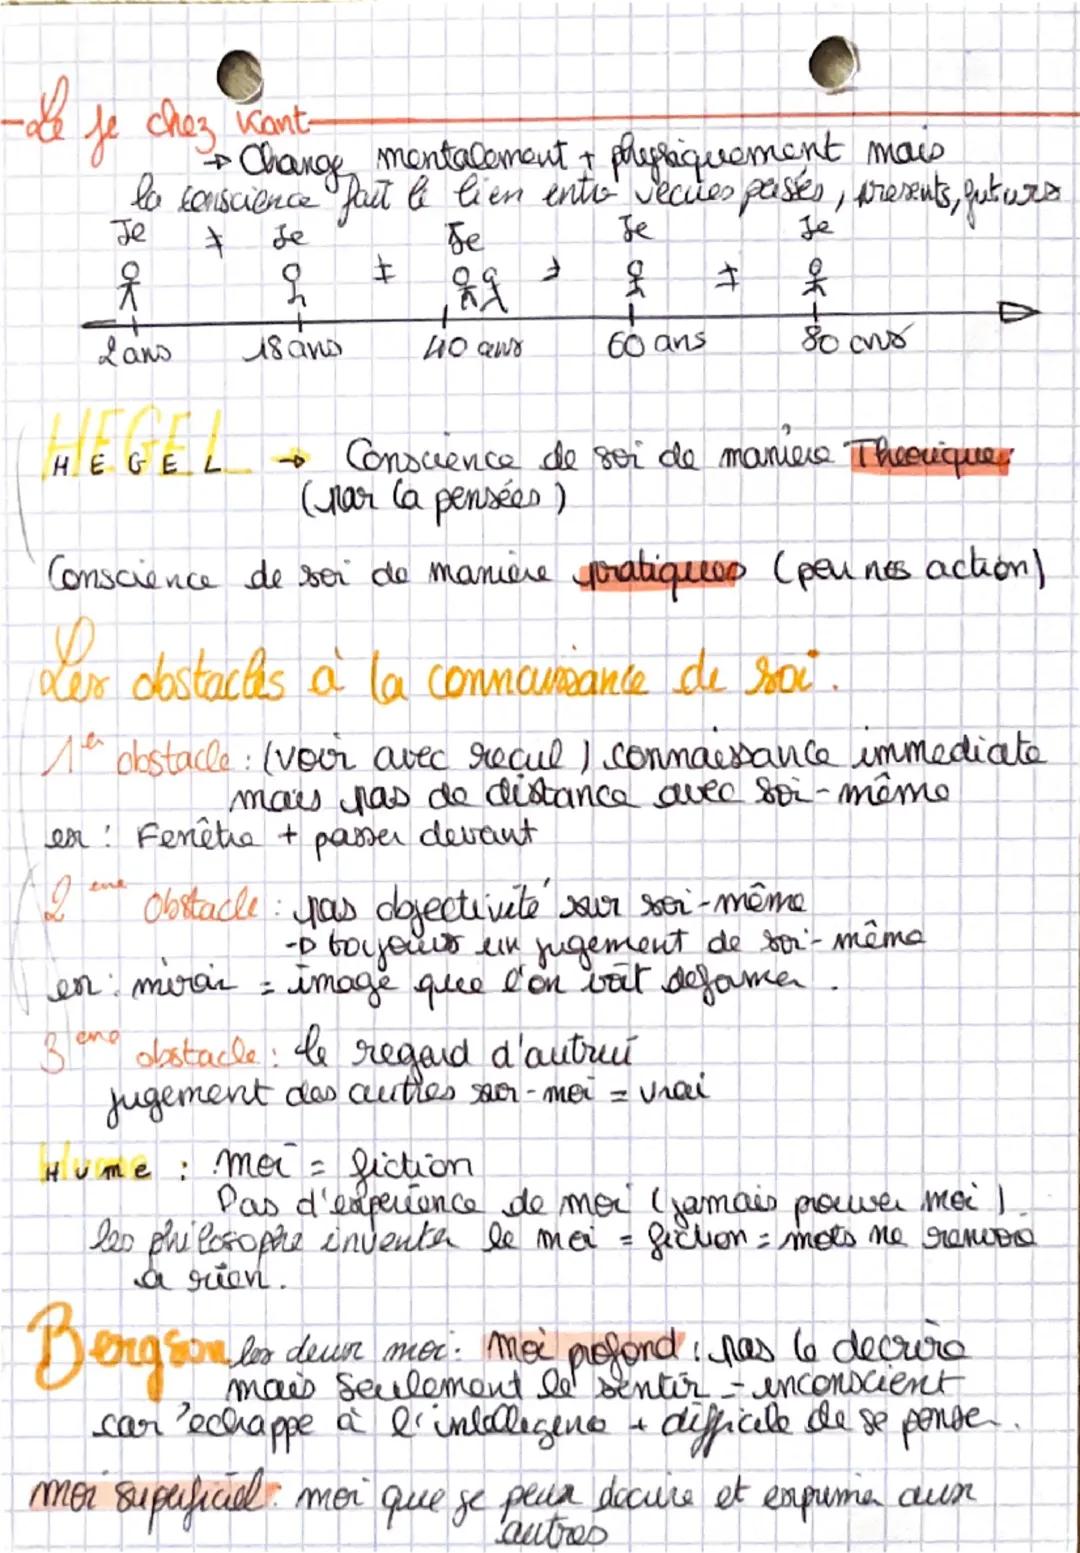 Le je chez Kant
→ Change mentalement + physiquement mais
la conscience fait le lien entre vécues passés, présents, futurs
Je ≠ Je Je Je Je
≠ ≠ ≠
2 ans 18 ans 40 ans 60 ans 80 ans
HEGEL
HEGEL → Conscience de soi de manière Theorique
(par la pensées)
Conscience de soi de manière pratiques (peu nos action)
Les obstacles à la connaissance de soi.
1er obstacle : (voir avec recul) connaissance immediate
mais pas de distance avec soi-même
ex : Fenêtre + passer devant
2ème obstacle : pas objectivité sur soi-même
→ toujours un jugement de soi-même
ex : miroir = image que l'on voit deformer.
3ème obstacle : le regard d'autrui
jugement des autres sur-moi = vrai
Hume : moi = fiction
Pas d'experience de moi (jamais prouver moi)
les philosophe inventer le moi = fiction = mots ne renvoie
a rien.
Bergson les deux moi : moi profond : pas le decrire
mais seulement le sentir - inconscient
car echappe à l'intelligence + difficile de se penser.
moi superficiel : moi que je peux decrire et exprimer aux
autres